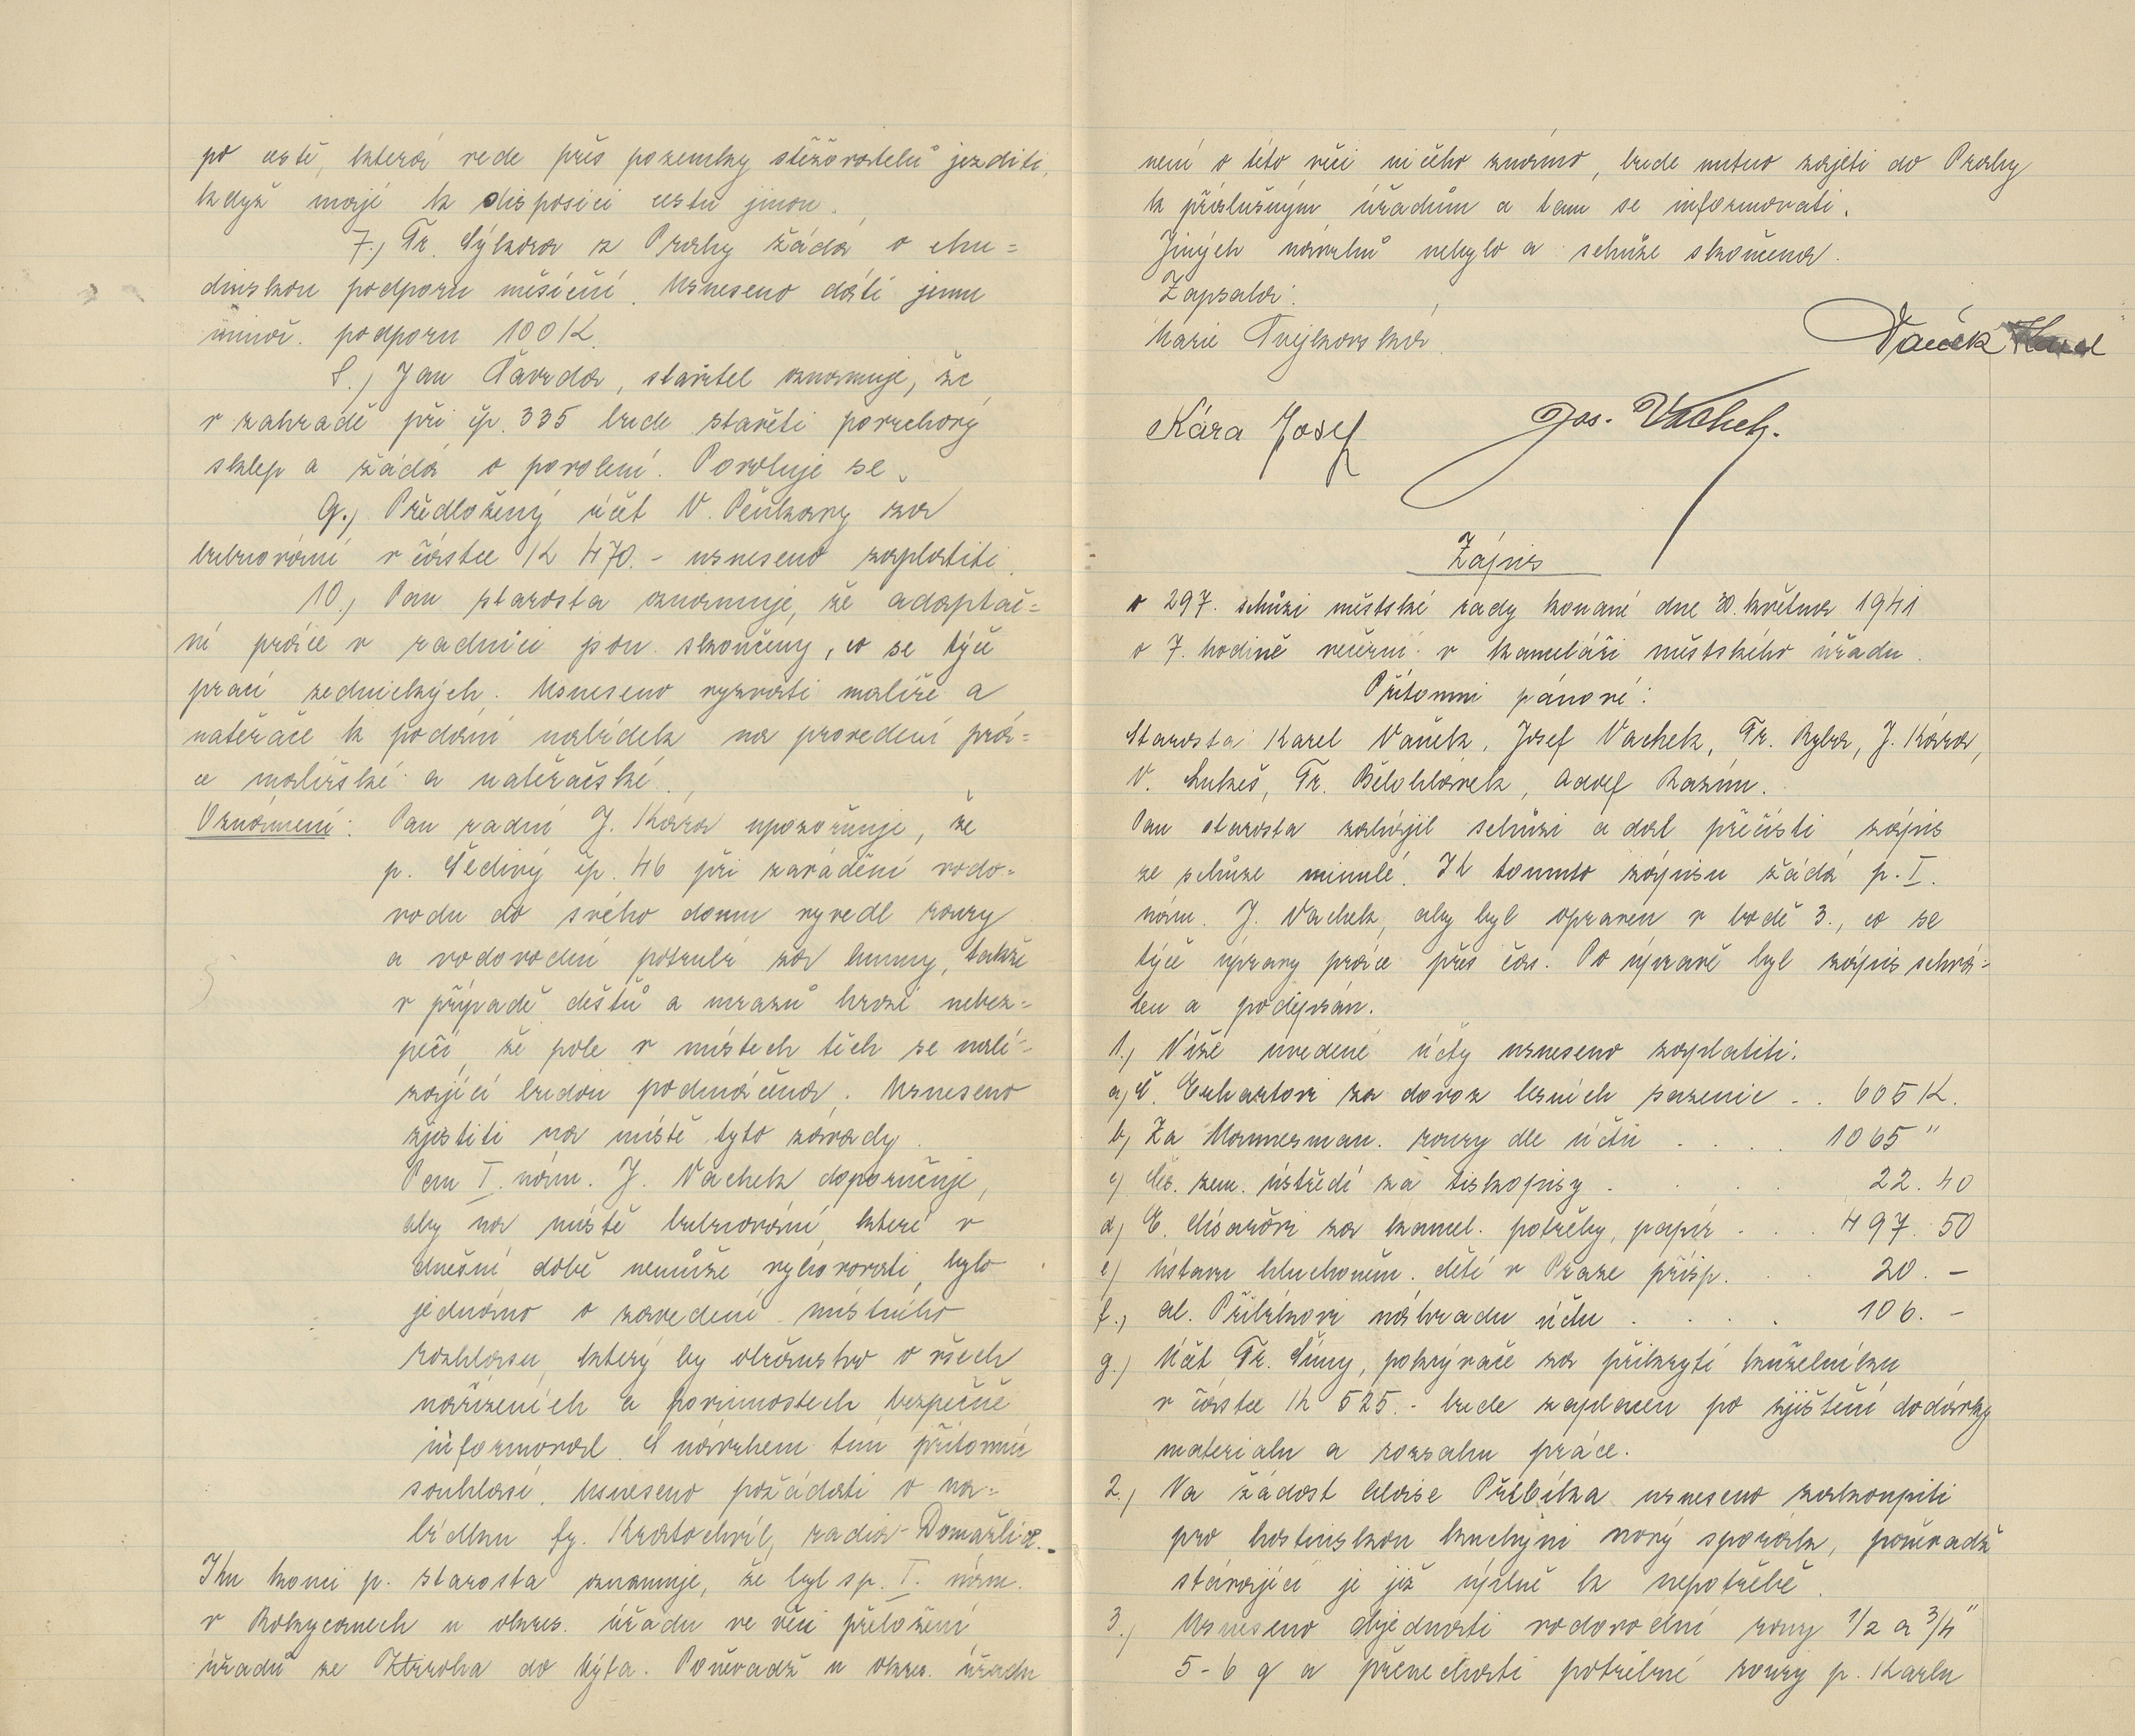 po cestě, která vede přes pozemky stěžovatelů jezditi,
když mají k disposici cestu jinou.
7., Fr. Sýkora z Prahy žádá o chu=
dinskou podporu měsíční. Usneseno dáti jemu
mimoř. podporu 100 K.
8., Jan Čavrda, stavitel oznamuje, že
v zahradě při čp. 335 bude stavěti povrchový
sklep a žádá o povolení. Povoluje se.
9., Předložený účet V. Pěnkavy za
bubnování v částce K 470.- usneseno zaplatiti.
10., Pan starosta oznamuje, že adaptač=
ní práce v radnici jsou skončeny, co se týče
prací zednických. Usneseno vyzvati malíře a
natěrače k podání nabídek na provedení prá=
ce malířské a natěračské.
Oznámení: Pan radní J. Kára upozorňuje, že
p. Šedivý čp. 46 při zavádění vodo=
vodu do svého domu vyvedl roury
a vodovodní potrubí za humny, takže
v případě deštů a mrazů hrozí nebez=
pečí, že pole v místech těch se nalé-
zající budou podmáčena. Usneseno
zjistiti na místě tyto závady.
Pan I. nám. J. Vachek doporučuje,
aby na místě bubnování, které v
dnešní době nemůže vyhovovati, bylo
jednáno o zavedení místního
rozhlasu, který by občanstvo o všech
nařízeních a povinnostech bezpečně
informoval. S návrhem tím přítomní
souhlasí. Usneseno požádati o na=
bídku fy. Kratochvíl, radio-Domažlice.-
Ku konci p. starosta oznamuje, že byl s p. I. nám.
v Rokycanech u okres. úřadu ve věci přeložení
úřadů ze Ztrroha do Kýta. Poněvadž u okres. úřadu
není o této věci ničeho známo, bude nutno zajeti do Prahy
k příslušným úřadům a tam se informovati.
Jiných návrhů nebylo a schůze skončena.
Zapsala:
Marie Trejkovská
Vaněk Karel
Kára Josef Jos. Vachek.
Zápis
o 297. schůzi městské rady konané dne 30. května 1941
o 7. hodině večerní v kanceláři městského úřadu.
Přítomni pánové:
Starosta Karel Vaněk, Josef Vachek, Fr. Ryba, J. Kára,
V. Lukeš, Fr. Bělohlávek, Adolf Kazím.
Pan starosta zahájil schůzi a dal přečísti zápis
ze schůze minulé. K tomuto zápisu žádá p. I.
nám. J. Vachek, aby byl opraven v bodě 3., co se
týče úpravy práce přes čas. Po úpravě byl zápis schvá-
len a podepsán.
1., Níže uvedené účty usneseno zaplatiti.
a, V. Erhartovi za dovoz lesních sazenic . . 605 K.
b, Za Mannesman. roury dle účtů . . . . 1065 "
c, Čes. zem. ústředí za tiskopisy . . . . 22.40
d, E. Císařovi za kancel. potřeby, papír . . . 497.50
e, Ústavu hluchoněm. dětí v Praze přísp. . . 20.-
f., Al. Přibíkovi náhradu účtu . . . . 106.-
g., Účet Fr. Šímy, pokrývače za přikrytí kuželníku
v částce K 525.- bude zaplacen po zjištění dodávky
materialu a rozsahu práce.
2., Na žádost Aloise Přibíka usneseno zakoupiti
pro hostinskou kuchyni nový sporák, poněvadž
stávající je již úplně k nepotřebě.
3., Usneseno objednati vodovodní roury 1/2 a 3/4"
5-6 q a přenechati potřebné roury p. Karlu